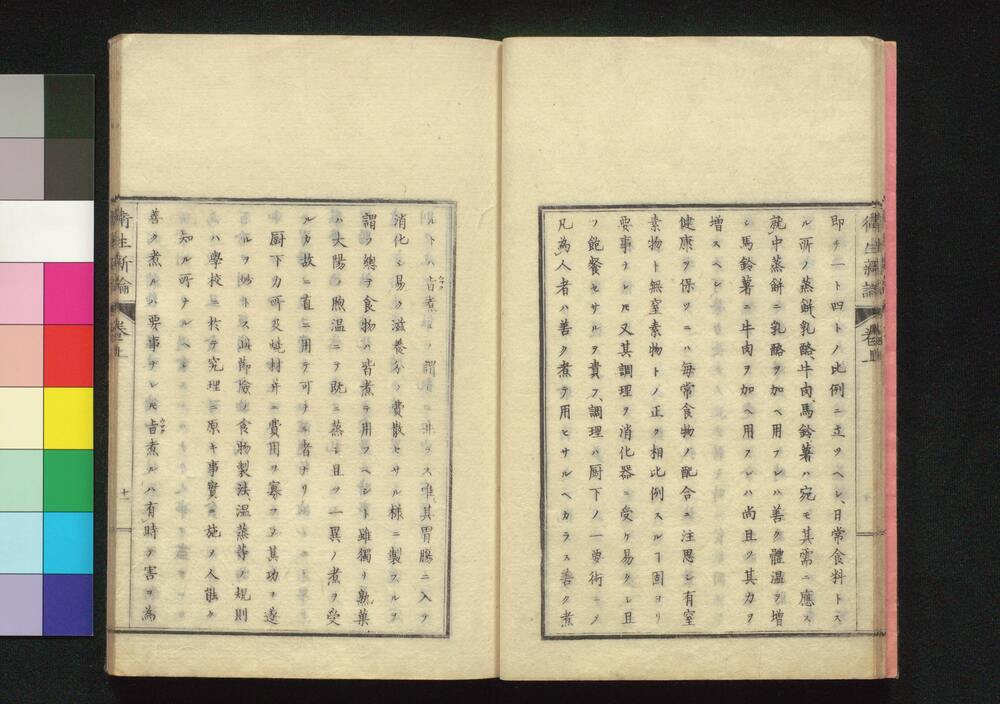 衛生新論
卷之上
即チ一ト四トノ比例ニ立ツヘシ、日常食料トス
ル所ノ蒸餅、乳酪、牛肉、馬鈴薯ハ宛モ其需ニ應ス
就中蒸餅ニ乳酪ヲ加ヘ用フレハ善ク體温ヲ増
シ馬鈴薯ニ牛肉ヲ加ヘ用フレハ尚且ツ其力ヲ
増スヘシ
健康ヲ保ツニハ毎常食物ノ配合ニ注思シ有窒
素物ト無窒素物トノ正ク相比例スルヿ固ヨリ
要事ナレ𪜈又其調理ヲ消化器ニ受ケ易クシ且
ツ飽餐セサルヲ貴フ、調理ハ厨下ノ一要術ニノ
凡為人者ハ善ク煮テ用ヒサルヘカラス善ク煮
ト ハ 皆煮 ノ謂ニ非ラス唯其胃腸ニ入テ
消化シ易ク滋養分ノ費散セサル様ニ製スルヲ
謂フ總テ食物ハ皆煮テ用フヘシト雖獨リ熟菓
ハ大陽ノ煦温ニテ既ニ蒸シ且ツ一異ノ煮ヲ受
ルカ故ニ直ニ用テ可ナル者ナリ
厨下力所及焼材并ニ費用ヲ寡フヲ其功ヲ遂
ルヲ妙トス 節險ノ食物製法、温蒸等ノ規則
ハ學校ニ於テ究理ニ原キ事實ニ施ヲ人能ク
知ル所ナルヘシ
善ク煮ルハ要事ナレ𪜈 煮ルハ有時テ害ヲ為
衛生新論
卷之上
十一